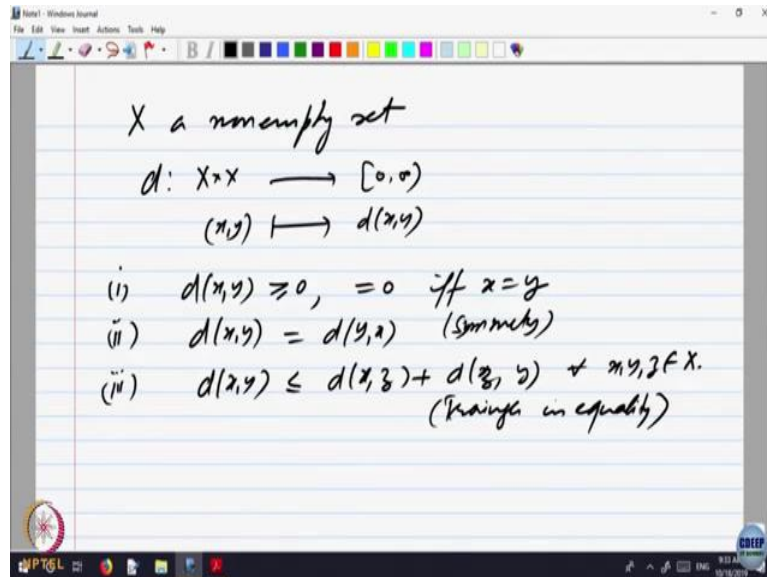 Note1 - Windows Journal
File Edit View Insert Actions Tools Help
B I
X a nonempty set
d: X×X ⟶ [0,∞)
(x,y) ⟼ d(x,y)
(i) d(x,y) ≥ 0, = 0 iff x = y
(ii) d(x,y) = d(y,x) (Symmetry)
(iii) d(x,y) ≤ d(x,z) + d(z, y) ∀ x,y,z ∈ X.
(Traingle in equality)
NPTEL
CDEEP
ENG
10/18/2019